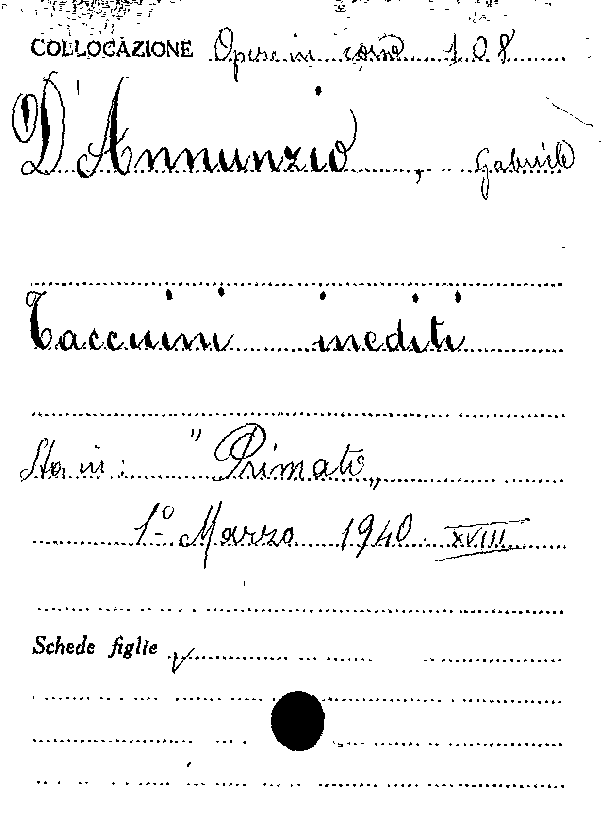 COLLOCAZIONE Opere in corso 108
D'Annunzio, Gabriele
Taccuini inediti
Sta in: "Primato„
1º Marzo 1940. XVIII
Schede figlie